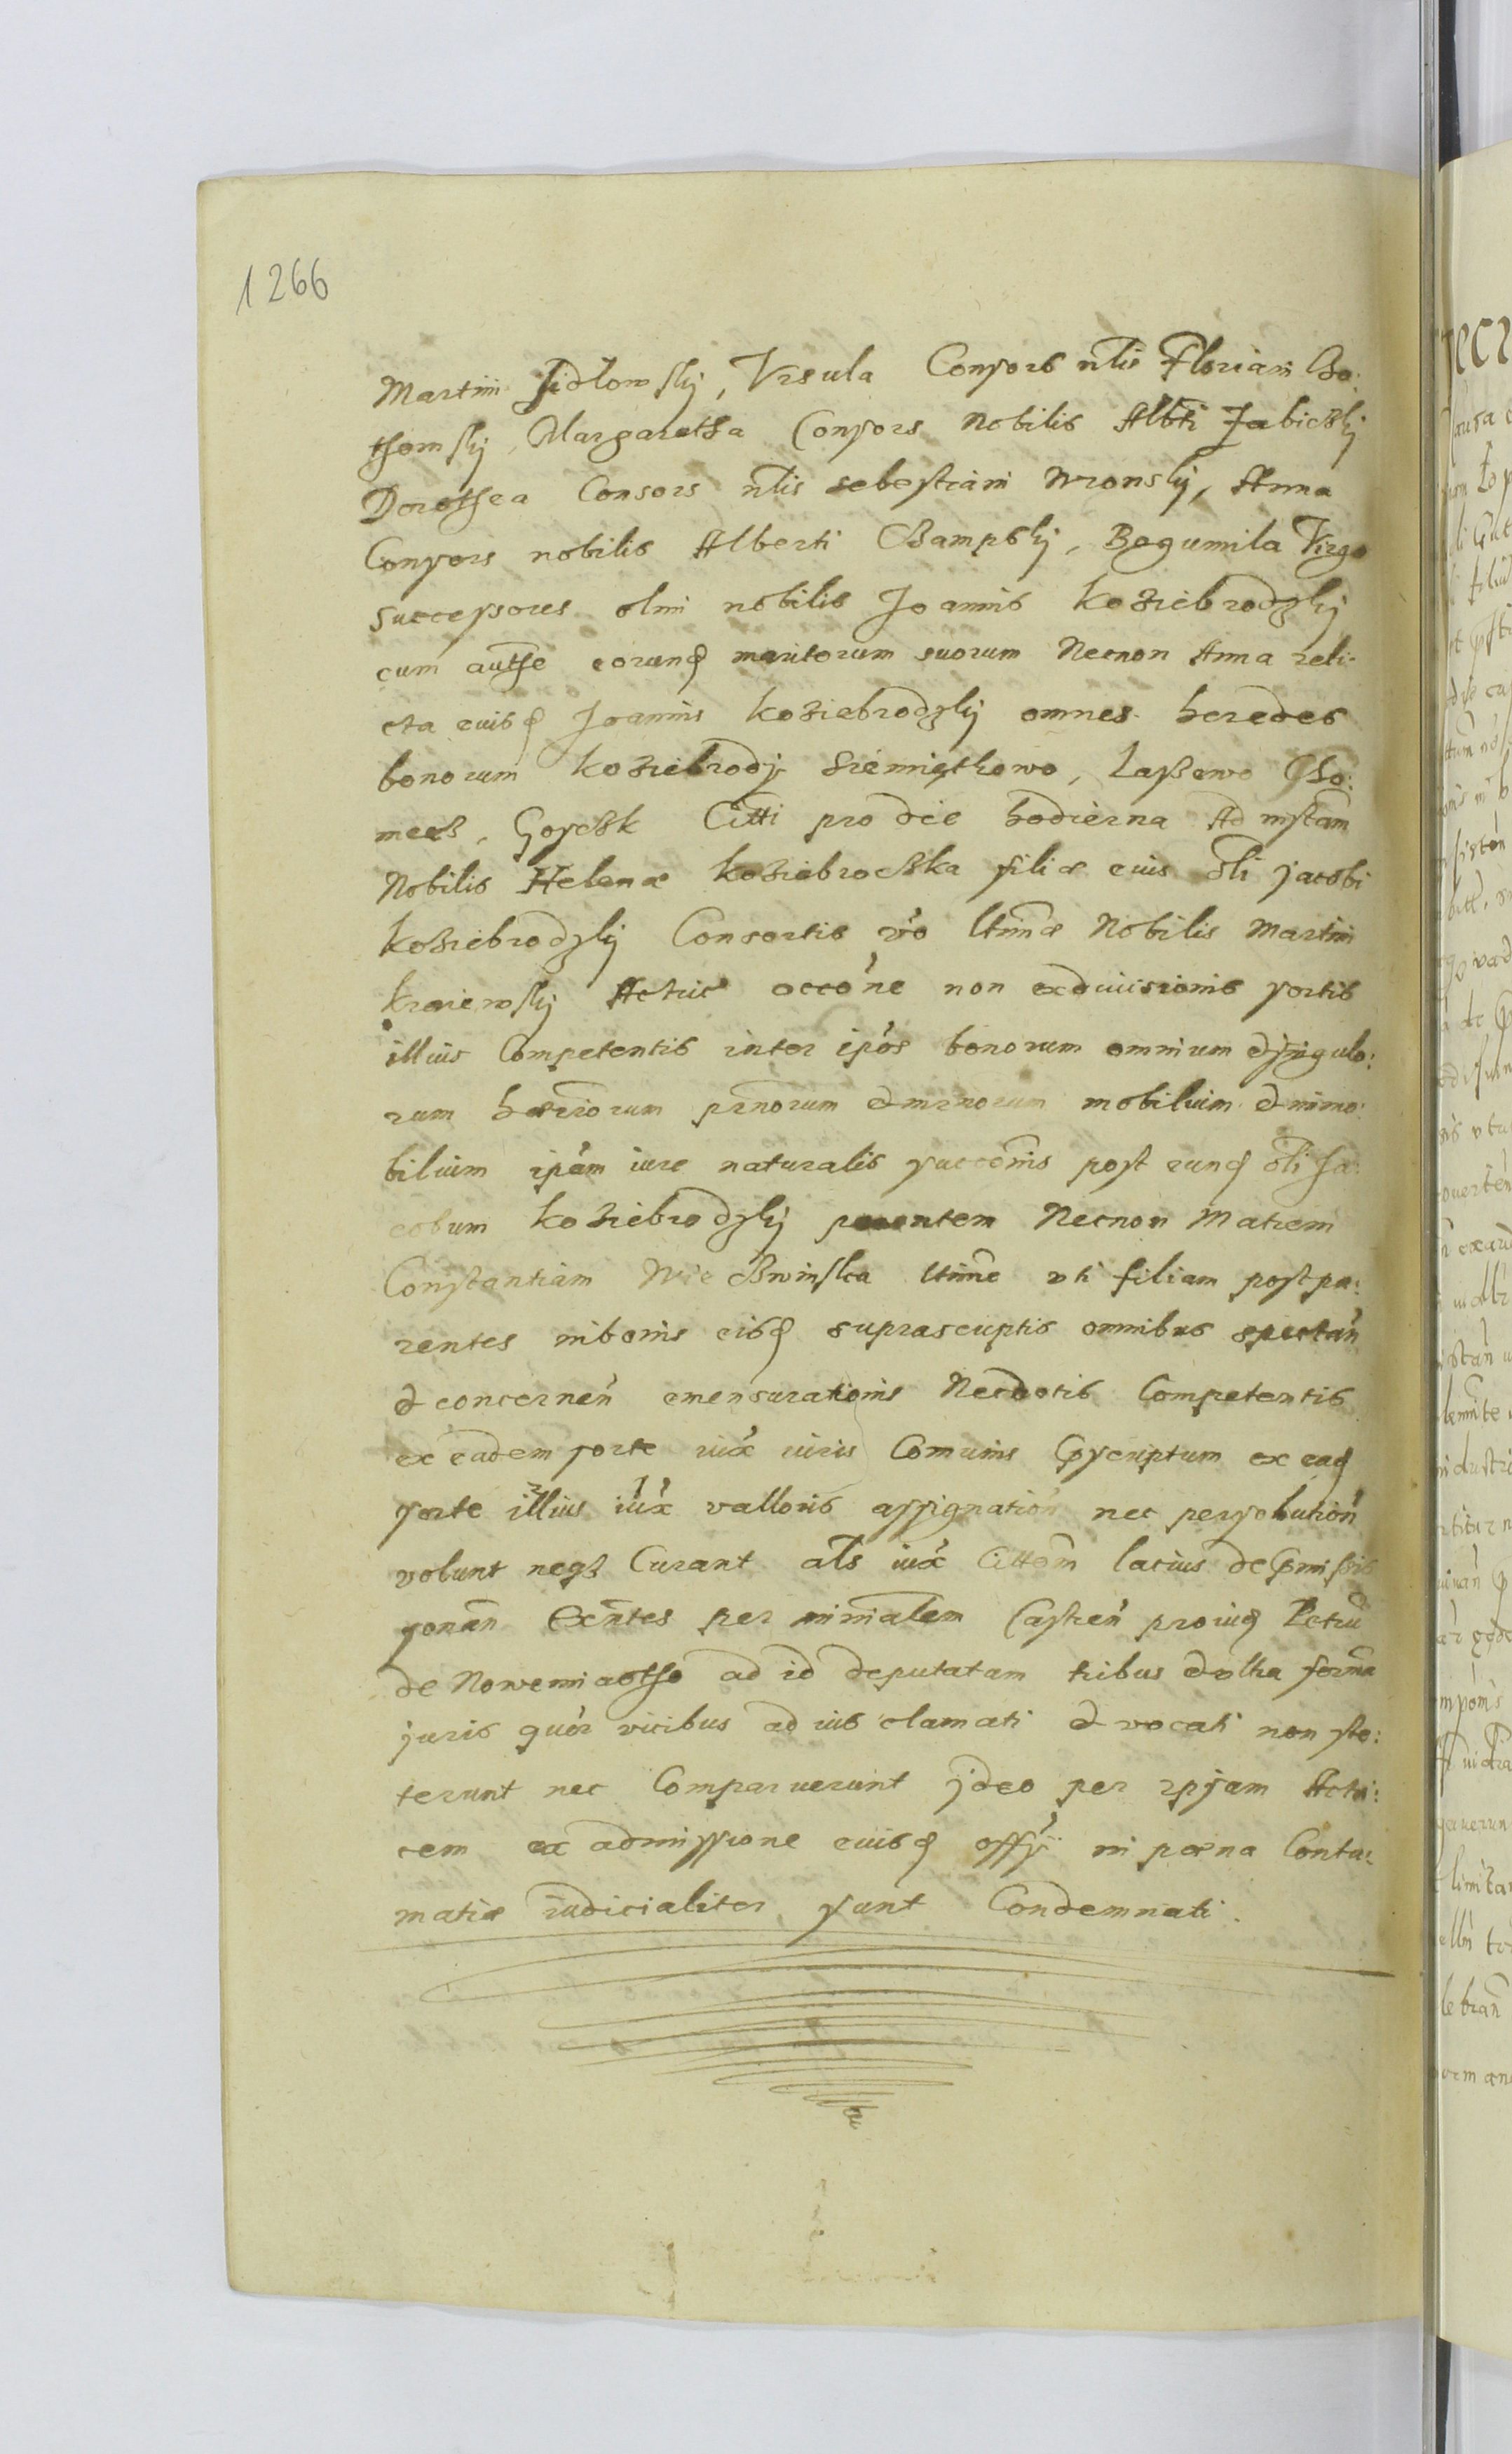 1266
Martini Sidlowskij, Vrsula Consors nlis Floriani Bo:
thomskij, Margaretha Consors Nobilis Albti Jabiczkij
Dorothea Consors nlis sebastiani Wronskij, Anna
Consors nobilis Alberti Bampskij, Bogumila Virgo
successores olim nobilis Joannis Koziebrodzkij
cum authe eorund maritorum suorum Necnon Anna reli-
cta euisd Joannis Koziebrodzkij omnes heredes
bonorum Koziebrody Siemiątkowo, Laszewo
Goyszk Citti pro die hodierna Ad instam
Nobilis Helenæ Koziebroczka filiæ euis oli Jacobi
Koziebrodzkij Consortis vo ltimæ Nobilis Martini
Kraiewskij Actric occone non exdiuisionis sortis
illius Competentis inter ipos bonorum omnium & singulo:
rum hæriorum pTnorum & mTnorum mobilium & immo:
bilium ipam iure naturalis succonis post eund oli Ja:
cobum Koziebrodzkij parentem Necnon Matrem
Constantiam ltime vti filiam post pa:
rentes in bonis eisd suprascriptis omnibus spectan
& concernen emensurationis Nec dotis Competentis
ex eadem sorte iux iuris Comunis pscriptum ex ead
sorte illius iux valloris assignation nec persolution
volunt neqz Curant als iux Cittom latius de pmissis
sonan Exntes per minialem Castren prouid Petru
de Nowemiastho ad id deputatam tribus & vltra forma
juris quar vicibus ad ius clamati & vocati non ste:
terunt nec Comparuerunt jdeo per ipsam Actri:
cem ex admissione euisd offy in poena Contu:
matiæ iudicialiter sunt Condemnati.